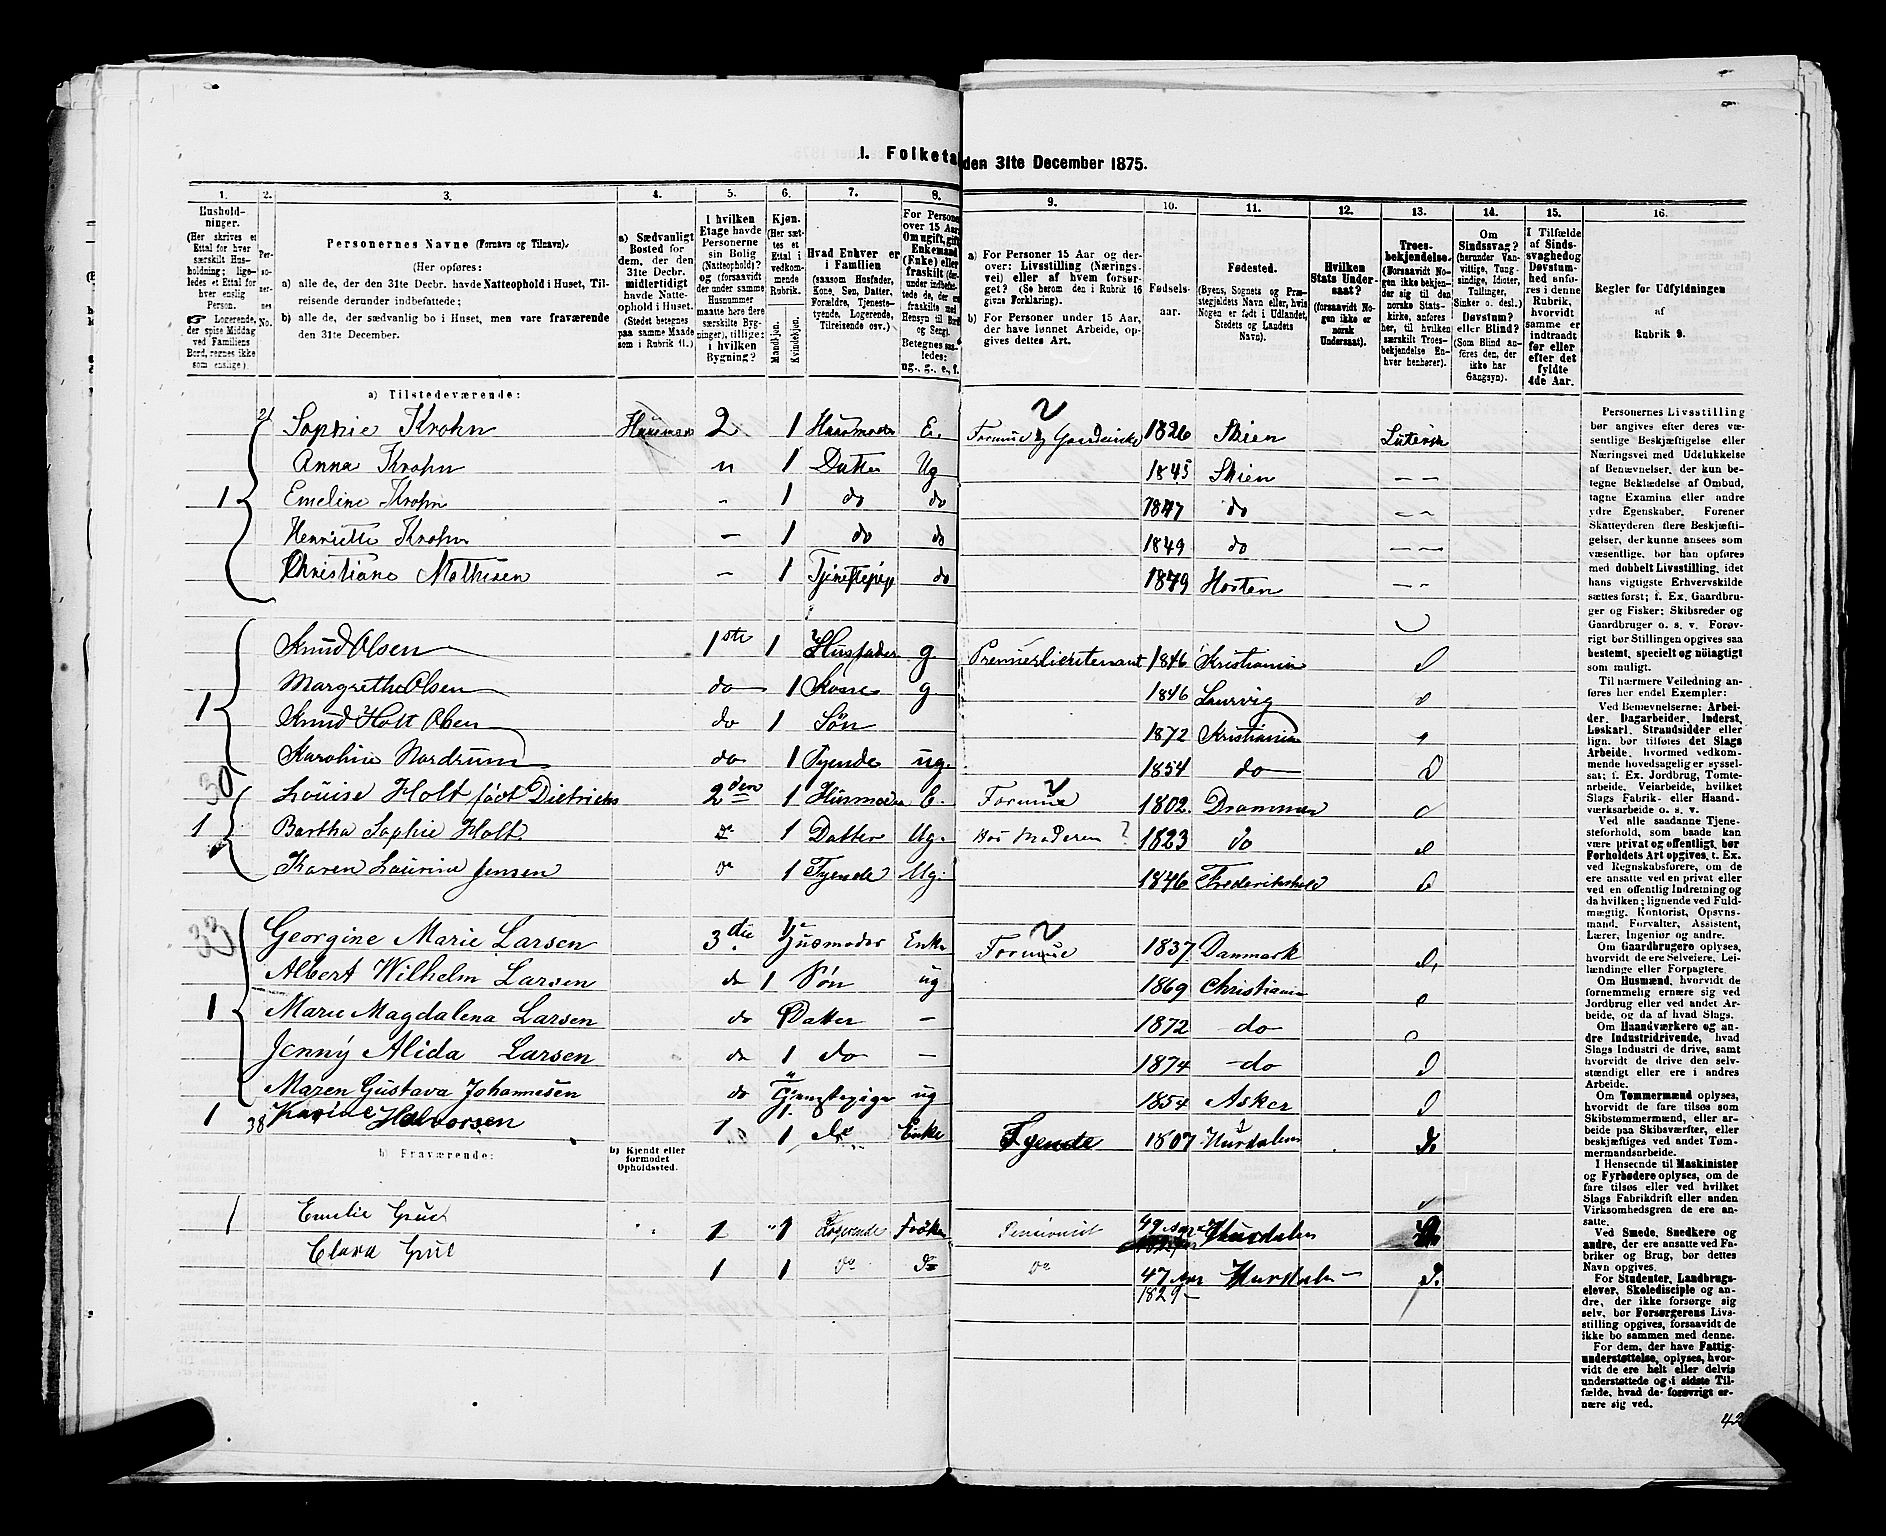 1. Folketa den 31te December 1875.
1. 2. 3. 4. 5. 6. 7. 8. 9. 10. 11. 12. 13. 14. 15. 16.
Husholdninger. (Her skrives et Ettal for hver særskilt Husholdning; ligeledes et Ettal for hver enslig Person. Logerende, der spise Middag ved Familiens Bord, regnes ikke som enslige).
Personernes No.
Personernes Navne (Fornavn og Tilnavn).
(Her opføres:
a) alle de, der den 31te Decbr. havde Natteophold i Huset, Tilreisende derunder indbefattede;
b) alle de, der sædvanlig bo i Huset, men vare fraværende den 31te December.
a) Sædvanligt Bosted for dem, der den 31te Decbr. midlertidigt havde Natteophold i Huset. (Stedet betegnes paa samme Maade som i Rubrik 11.)
I hvilken Etage havde Personerne sin Bolig (Natteophold)? og (forsaavidt der under samme Husnummer maatte høre flere særskilte Bygninger), tillige: i hvilken Bygning?
Kjøn. (Her sættes et Ettal i vedkommende Rubrik. Mandkjøn. Kvindekjøn.
Hvad Enhver er i Familien (saasom Husfader, Kone, Søn, Datter, Forældre, Tjenestetyende, Logerende, Tilreisende osv.)
a) For Personer 15 Aar og derover: Livsstilling (Næringsvei) eller af hvem forsørget? (Se herom den i Rubrik 16 givne Forklaring).
b) For Personer under 15 Aar, der have lønnet Arbeide, opgives dettes Art.
Fødselsaar.
Fødested. (Byens, Sognets og Præstegjeldets Navn eller, hvis Nogen er født i Udlandet, Stedets og Landets Navn).
Hvilken Stats Undersaat? (forsaavidt Nogen ikke er norsk Undersaat).
Troesbekjendelse. (Forsaavidt Nogen ikke bekjender sig til den norske Statskirke, anføres her, til hvilken særskilt Troesbekjendelse Enhver henhører).
Om Sindssvag? (herunder Vanvittige, Tungsindige, Idioter, Tullinger, Sinker o. desl.) Døvstum? eller Blind? (Som Blind anføres den, der ikke har Gangsyn).
I Tilfælde af Sindssvaghed og Døvstumhed anføres i denne Rubrik, hvorvidt samme er indtraadt før eller efter det fyldte 4de Aar.
Regler for Udfyldningen af Rubrik 9.
a) Tilstedeværende:
Sophie Krohn 2 1 Husmoder E. Formue og 1826 Skien Lutersk
Anna Krohn 1 Datter Ug 1845 Skien
1 Emeline Krohn 1 do do 1847 do
Henriette Krohn 1 do do 1849 do
Christiane Mathisen 1 do 1849 Horten
Knud Olsen 1ste 1 Husfader g Premierlieutenant 1846 Kristiania
Margrethe Olsen do 1 Kone g 1846 Laurvig
1 Knud Holt Olsen do 1 Søn 1872 Kristiania
Karoline Nordrum do 1 Tyende ug. 1854 do
30
Louise Holt født Dietrichs 2den 1 Husmoder Formue 1802 Drammen
1 Bartha Sophie Holt 1 Datter Ug. Hos Moderen ? 1823 do
Karen Laurine Jensen 1 Tyende Ug. 1846 Frederikshald
33
Georgine Marie Larsen 3die Husmoder Enke Formue 1837 Danmark
Albert Wilhelm Larsen do 1 Søn ug 1869 Christiania
1 Marie Magdalena Larsen do Datter 1872 do
Jenny Alida Larsen do 1 do 1874 do
Maren Gustava Johannesen do Tjenestepige ug 1854 Asker
1 38 Karine Halvorsen 1 1 do Enke Tyende 1807 Hurdalen
b) Fraværende:
b) Kjendt eller formodet Opholdssted.
1 Emilie 1 1 Logerende Frøken Pensionist 49 Aar Hurdalen
Clara 1 1 do do do 47 Aar Hurdalen
1829
Personernes Livsstilling bør angives efter deres væsentlige Beskjæftigelse eller Næringsvei med Udelukkelse af Benævnelser, der kun betegne Beklædelse af Ombud, tagne Examina eller andre ydre Egenskaber. Forener Skatteyderen flere Beskjæftigelser, der kunne ansees som væsentlige, bør han opføres med dobbelt Livsstilling, idet hans vigtigste Erhvervskilde sættes først; f. Ex. Gaardbruger og Fisker; Skibsreder og Gaardbruger o. s. v. Forøvrigt bør Stillingen opgives saa bestemt, specielt og nøiagtigt som muligt.
Til nærmere Veiledning anføres her endel Exempler:
Ved Benævnelserne: Arbeider, Dagarbeider, Inderst, Løskarl, Strandsidder eller lign. bør tilføies det Slags Arbeide, hvormed vedkommende hovedsagelig er sysselsat; f. Ex. Jordbrug, Tomtearbeide, Veiarbeide, hvilket Slags Fabrik- eller Haandværksarbeide o. s. v.
Ved alle saadanne Tjenesteforhold, som baade kan være privat og offentligt, bør Forholdets Art opgives, t. Ex. ved Regnskabsførere, om de ere ansatte ved en privat eller ved en offentlig Indretning og da hvilken; lignende ved Fuldmægtig, Kontorist, Opsynsmand, Forvalter, Assistent, Lærer, Ingeniør og andre.
Om Gaardbrugere oplyses, hvorvidt de ere Selveiere, Leilændinge eller Forpagtere.
Om Husmænd, hvorvidt de fornemmelig ernære sig ved Jordbrug eller ved andet Arbeide, og da af hvad Slags.
Om Haandværkere og andre Industridrivende, hvad Slags Industri de drive, samt hvorvidt de drive den selvstændigt eller ere i andres Arbeide.
Om Tømmermænd oplyses, hvorvidt de fare tilsøs som Skibstømmermænd, eller arbeide paa Skibsværfter, eller beskjæftiges ved andet Tømmermandsarbeide.
I Henseende til Maskinister og Fyrbødere oplyses, om de fare tilsøs eller ved hvilket Slags Fabrikdrift eller anden Virksomhedsgren de ere ansatte.
Ved Smede, Snedkere og andre, der ere ansatte ved Fabriker og Brug, bør dettes Navn opgives.
For Studenter, Landbrugselever, Skoledisciple og andre, der ikke forsørge sig selv, bør Forsørgerens Livsstilling opgives, forsaavidt de ikke bo sammen med denne.
For dem, der have Fattigunderstøttelse, oplyses, hvorvidt de ere helt eller delvis understøttede og i sidste Tilfælde, hvad de forøvrigt ernære sig ved.